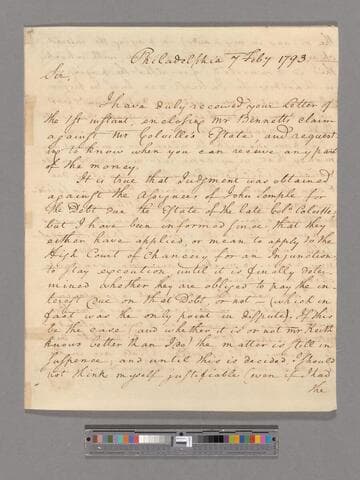 Philadelphia 7 Feby 1793
Sir,
I have duly received your Letter of
the 1st instant, enclosing Mr Bennetts claim
against Mr Colville's Estate and request-
ing to know when you can receive any part
of the money.
It is true that Judgment was obtained
against the Assignees of John Semple for
the Debt due the Estate of the late Colo. Colville,
but I have been informed since that they
either have applied, or mean to apply to the
High Court of Chancery for an Injunction
to stay execution until it is finally deter-
mined whether they are obliged to pay the in-
terest due on that Debt or not – (which in
fact was the only point in dispute). If this
be the case (and whether it is or not Mr Keith
knows better than I do) the matter is still in
suspence, and until this is decided I should
not think myself justifiable (even if I had
the